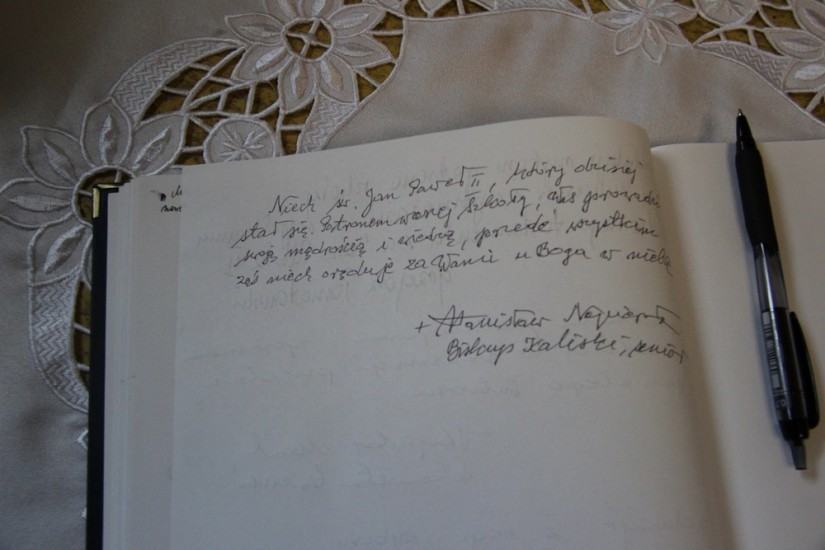 Niech św. Jan Paweł II, który dzisiaj
stał się Patronem waszej Szkoły, Was prowadzi
swoją mądrością i wiedzą, przede wszystkim
zaś niech oręduje za Wami u Boga w niebie
+ Stanisław Napierała
Biskup Kaliski, senior